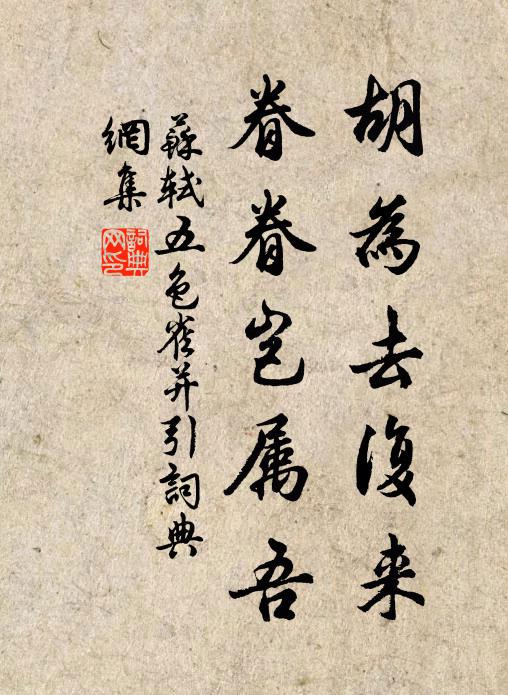 胡為去復来
眷眷岂属吾
蘇軾五色雀并引詞典
網集
詞典網印